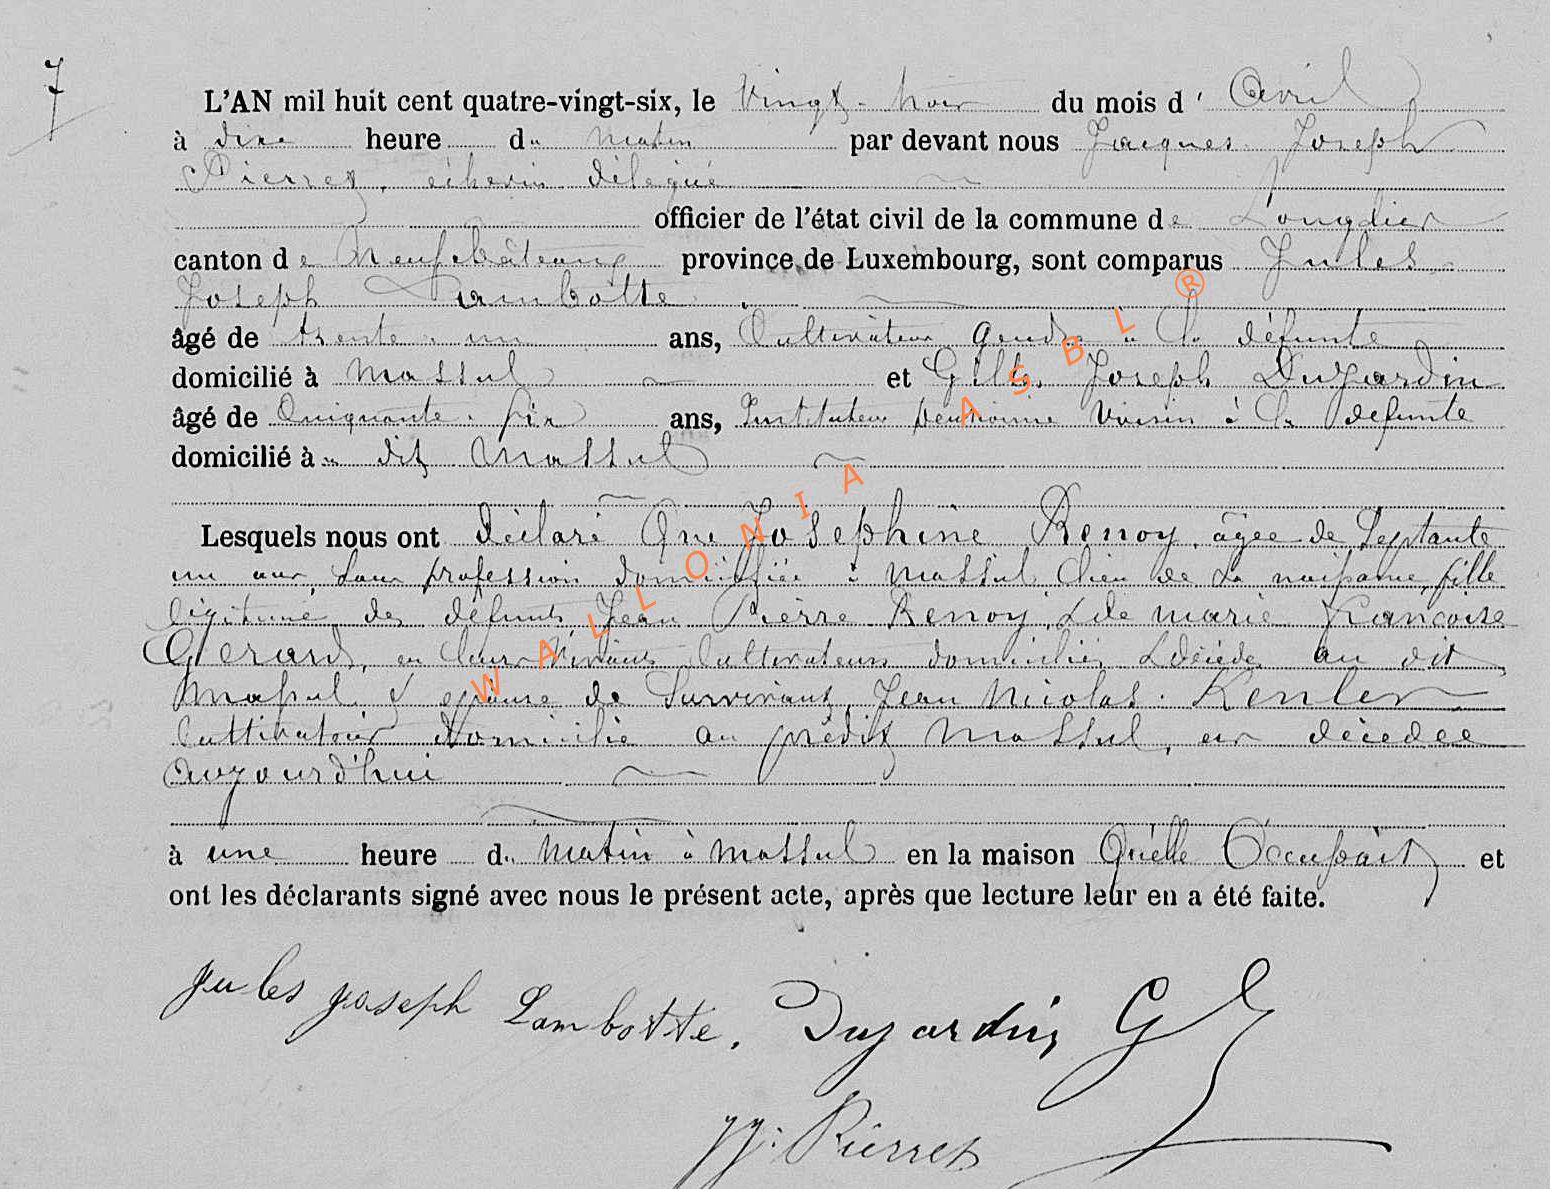 7
L'AN mil huit cent quatre-vingt-six, le Vingt-trois du mois d' Avril
à dix heure du matin par devant nous Jacques Joseph
Pierret, échevin délégué
officier de l'état civil de la commune de Longlier
canton de Neufchâteau province de Luxembourg, sont comparus Jules
Joseph Lambotte
âgé de trente-un ans, Cultivateur gendre à la défunte
domicilié à Massul et Gilles Joseph Dujardin
âgé de Cinquante-six ans, Instituteur pensionné voisin à la défunte
domicilié à dit Massul
Lesquels nous ont déclaré Que Josephine Renoy, âgée de Septante
un ans, Sans profession domiciliée à Massul lieu de sa naissance, fille
légitime des défunts Jean Pierre Renoy & de Marie Françoise
Gerard, en leurs vivants Cultivateurs domiciliés & décédés au dit
Massul & épouse de Survivant Jean Nicolas Kenler
Cultivateur domicilié au prédit Massul, est décédée
aujourd'hui
à une heure du Matin à Massul en la maison Qu'elle Occupait et
ont les déclarants signé avec nous le présent acte, après que lecture leur en a été faite.
jules joseph Lambotte. Dujardin G
JJ: Pierret
WALLONIA ASBL ®